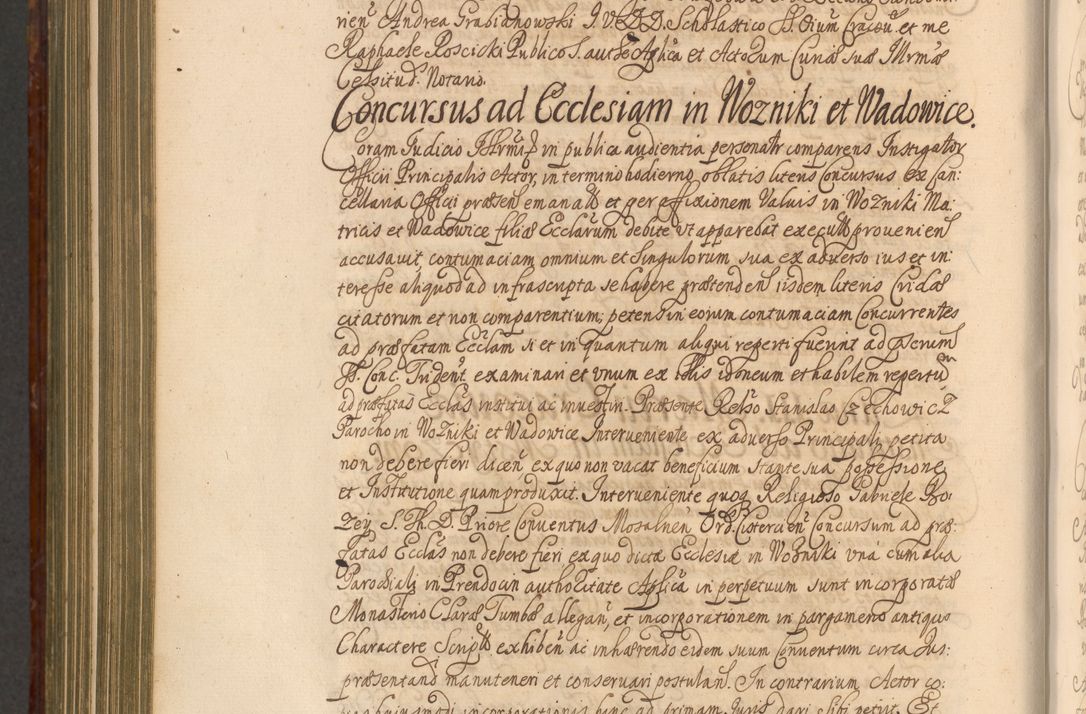 rien Andrea Grabianowski I.V.D.D. Scholastico SS. Oium Cracou. et me
Raphaele Roscicki Publico S. auth. Aplica et Actorum Curiae suae Illrmae
Celsitud. Notario.
Concursus ad Ecclesiam in Wozniki et Wadowice.
Coram Iudicio in publica audientia personalr comparens Instigator
Officii Principalis Actor, in termino hodierno oblatis literis Concursus ex Can:
cellaria Officii praesen emanatt et per affixionem Valuis in Wozniki Ma:
tricis et Wadowice filiae Ecclarum debite ut apparebat executt prouenien
accusauit contumaciam omnium et singulorum sua ex aduerso ius et in:
teresse aliquod ad infrascripta se habere praetenden iisdem literis Cridae
citatorum et non comparentium; peten in eorum contumaciam Concurrentes
ad praefatam Ecclam si et in quantum aliqui reperti fuerint ad pscrum
SS. Conc. Trident. examinari et vnum ex illis idoneum et habilem repertum
ad praefatas Ecclas institui ac inuestiri. Praesente Relso Stanislao Czechowicz
Parocho in Wozniki et Wadowice Interueniente ex aduerso Principali petita
non debere fieri dicen ex quo non vacat beneficium stante sua possessione
et Institutione quam produxit. Interueniente quoq Religioso Gabriele Bo:
zey S. Th. D. Priore Conuentus Mogilnen Ord. Cistercien Concursum ad prae:
fatas Ecclas non debere fieri ex quo dictae Ecclesiae in Wozniki vna cum alia
Parochiali in Prendocin authoritate Aplica in perpetuum sunt incorporatae
Monasterio Clarae Tumbae allegan, et incorporationem in pargameno antiquo
Charactere Scriptt exhiben ac inhaerendo eidem suum Conuentum circa Ius:
praesentandi manuteneri et conseruari postulan. In contrarium Actor co:
incorporationis hanc ad primam Iuris dari sibi petiit. Et